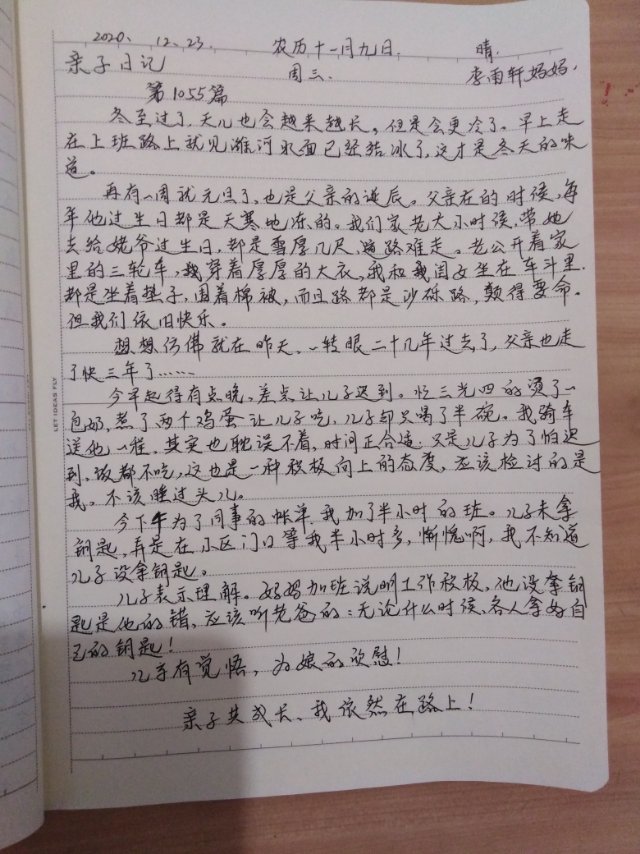 2020. 12. 23. 农历十一月九日. 晴.
亲子日记 周三. 李雨轩妈妈.
第1055篇
冬至过了,天儿也会越来越长,但是会更冷了。早上走
在上班路上就见潍河水面已经结冰了,这才是冬天的味
道。
再有一周就元旦了,也是父亲的诞辰。父亲在的时候,每
年他过生日都是天寒地冻的。我们家老大小时候,带她
去给姥爷过生日,都是雪厚几尺,道路难走。老公开着家
里的三轮车,我穿着厚厚的大衣,我和我闺女坐在车斗里.
都是坐着垫子,围着棉被,而且路都是沙砾路,颠得要命。
但我们依旧快乐。
想想仿佛就在昨天、一转眼二十几年过去了,父亲也走
了快三年了……
今早起得有点晚,差点让儿子迟到。忙三光四的烫了一
包奶,煮了两个鸡蛋让儿子吃,儿子却只喝了半碗。我骑车
送他一程,其实也耽误不着,时间正合适.又是儿子为了怕迟
到,饭都不吃,这也是一种积极向上的态度,应该检讨的是
我。不该睡过头儿。
今下午为了同事的帐单,我加了半小时的班。儿子未拿
钥匙,弄是在小区门口等我半小时多,惭愧啊,我不知道
儿子没拿钥匙。
儿子表示理解。妈妈加班说明工作积极,他没拿钥
匙是他的错,应该听老爸的:无论什么时候、各人拿好自
己的钥匙!
儿子有觉悟,为娘的欣慰!
亲子共成长、我依然在路上!
LET IDEAS FLY